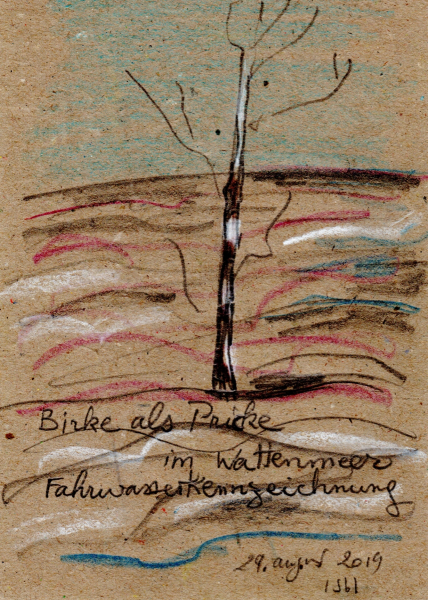 Birke als Pricke
im Wattenmeer
Fahrwasserkennzeichnung
29. august 2019